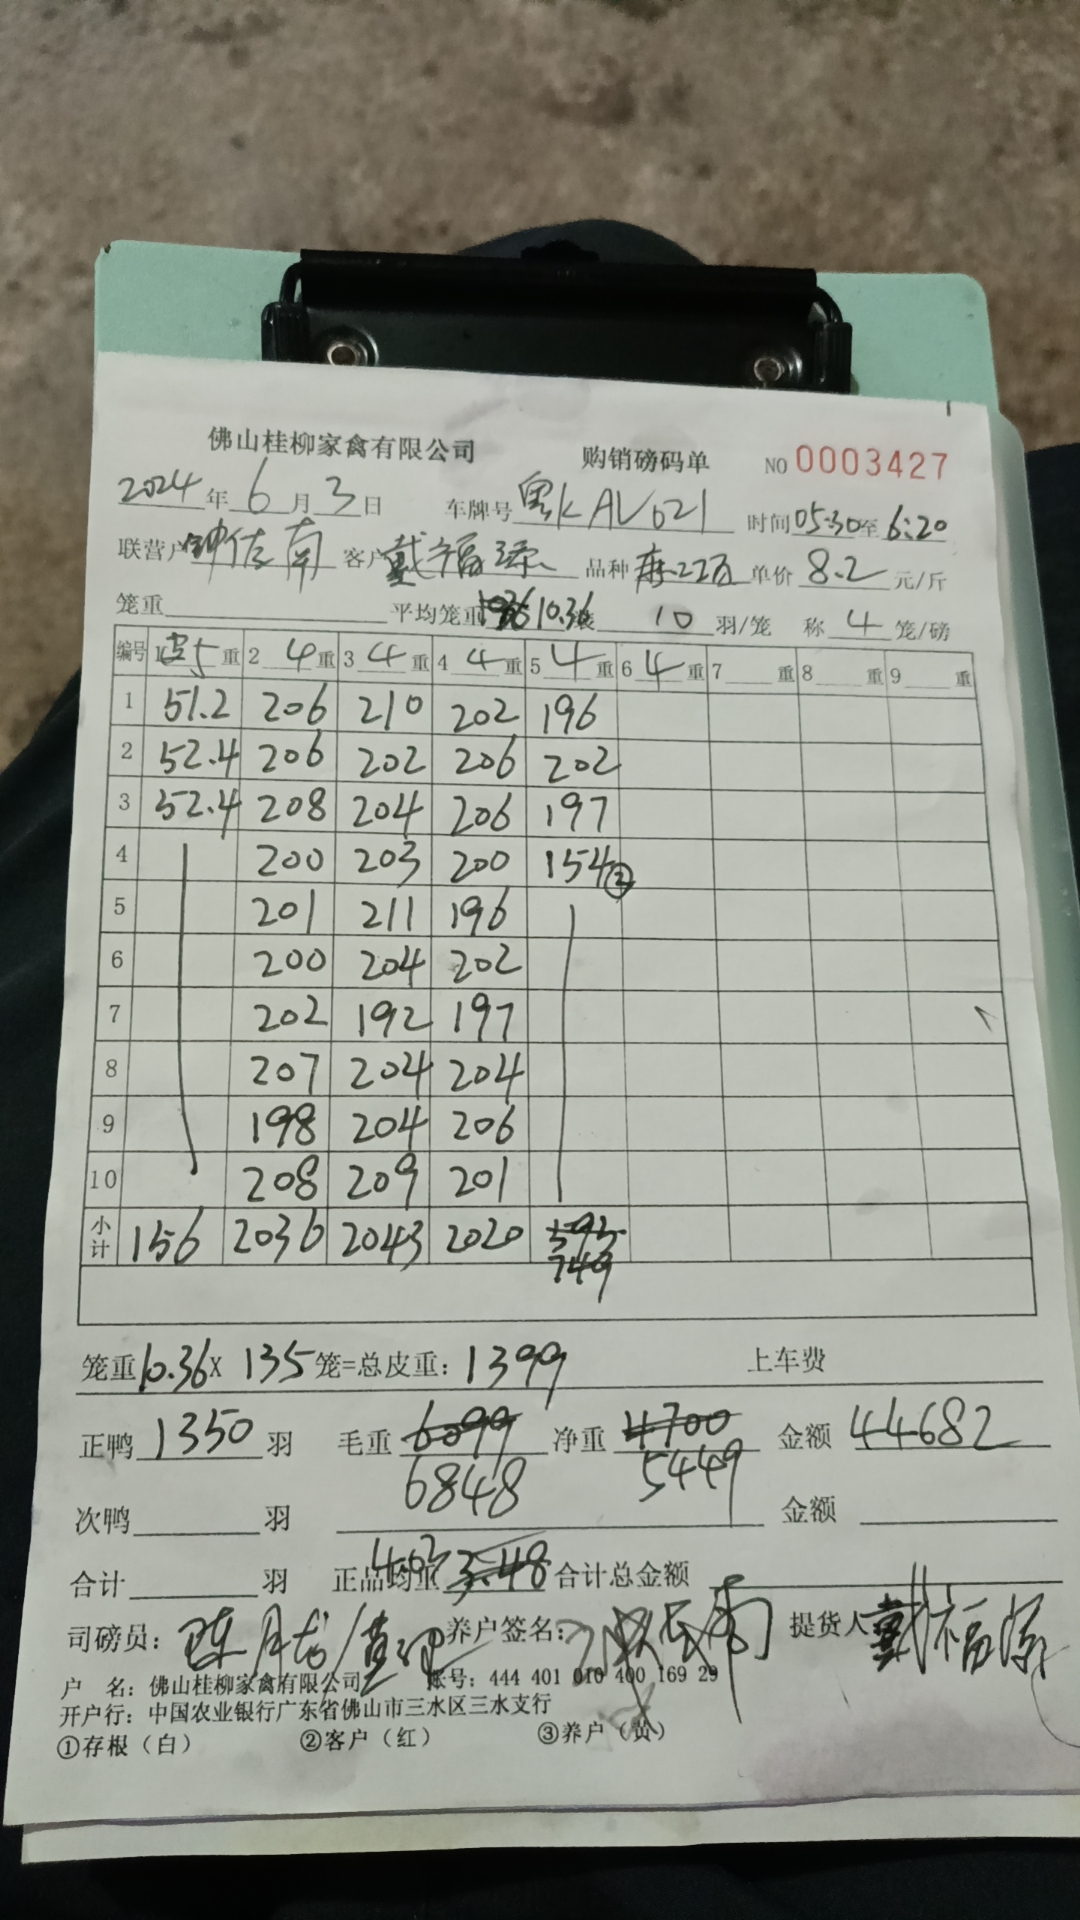 佛山桂柳家禽有限公司 购销磅码单 NO 0003427
2024年6月3日 车牌号 粤KAV621 时间05:30至6:20
联营户 钟伍南 客户 戴福源 品种 单价 8.2 元/斤
笼重 平均笼重 10.36 装 10 羽/笼 称 4 笼/磅
编号 1皮5重 2 4重 3 4重 4 4重 5 4重 6 4重 7 重 8 重 9 重
1 51.2 206 210 202 196
2 52.4 206 202 206 202
3 52.4 208 204 206 197
4 200 203 200 154 ③
5 201 211 196
6 200 204 202
7 202 192 197
8 207 204 204
9 198 204 206
10 208 209 201
小计 156 2036 2043 2020 595
749
笼重10.36X 135笼=总皮重: 1399 上车费
正鸭 1350 羽 毛重 6099 净重 4700 金额 44682
6848 5449
次鸭 羽 金额
合计 羽 正品均重 4.03 3.48 合计总金额
司磅员: 养户签名: 提货人 戴福源
户 名: 佛山桂柳家禽有限公司 账号: 444 401 010 400 169 29
开户行: 中国农业银行广东省佛山市三水区三水支行
①存根(白) ②客户(红) ③养户(黄)